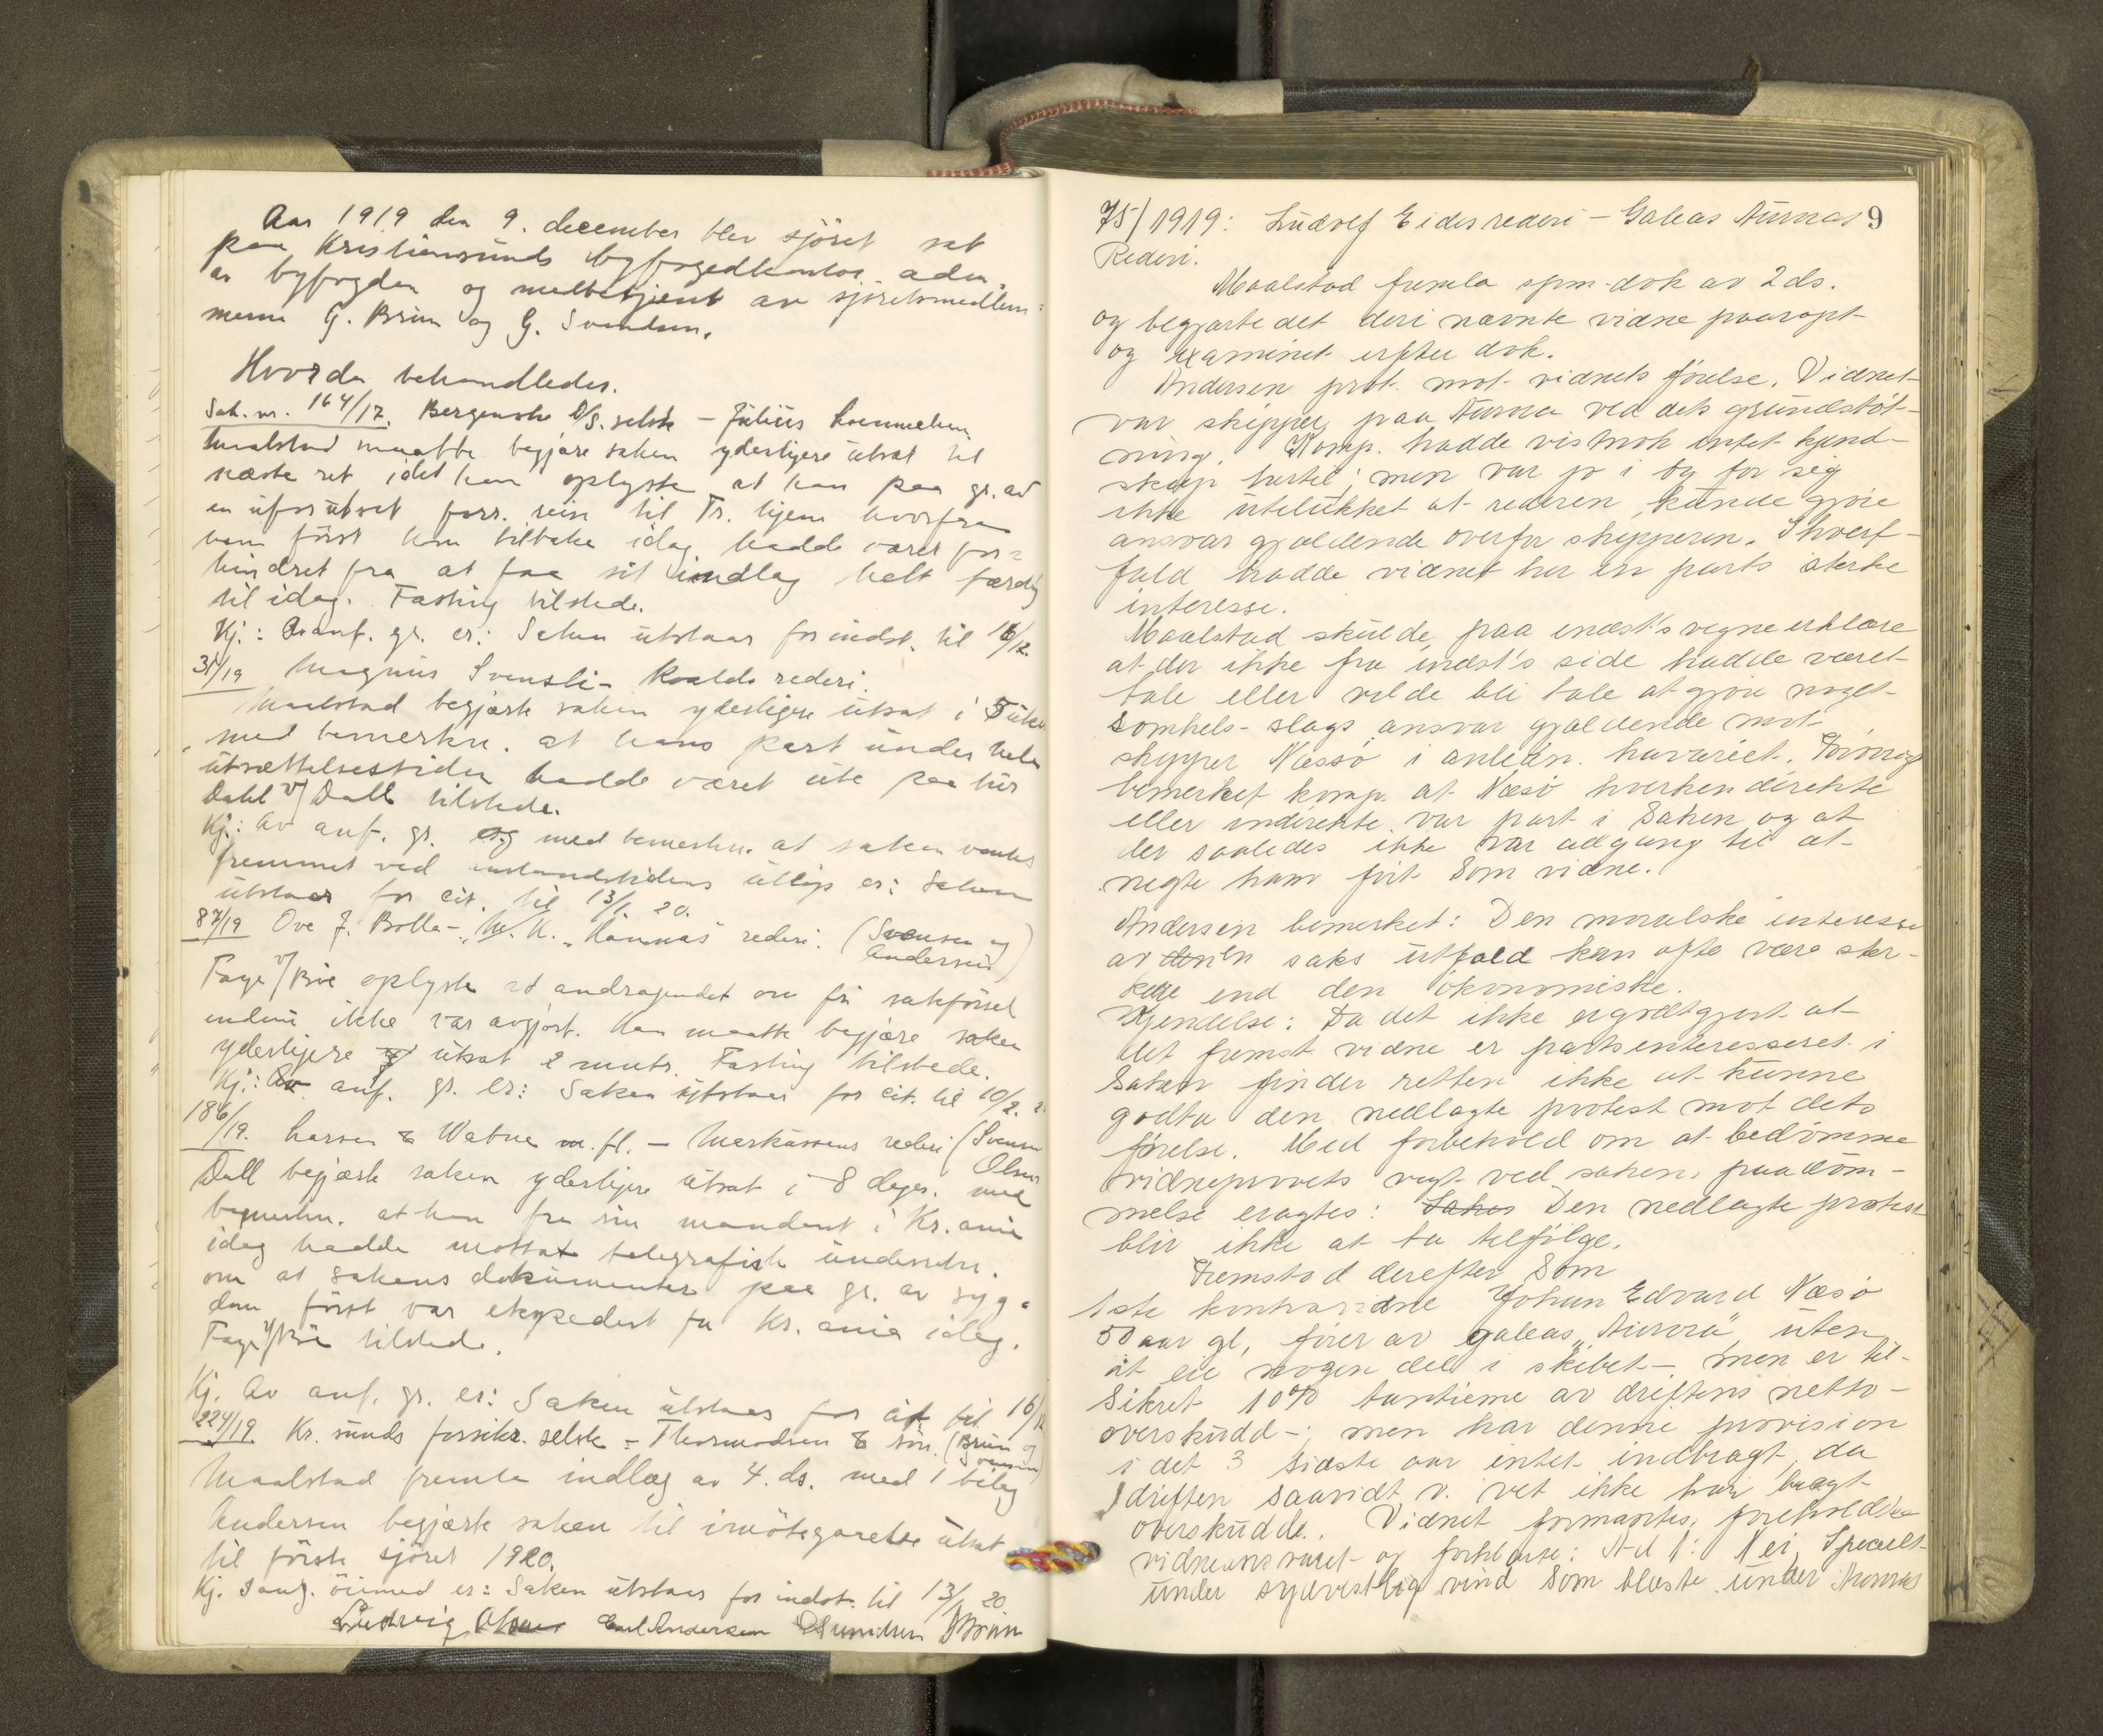 Aar 1919 den 9. december blev sjöret sat
paa Kristiansunds byfogedkontor adm.
av byfogden og meddomsmend av sjöretsmedlem=
merne G. Brün og G. Svendsen.
Hvorda behandledes.
Sak. nr. 164/17. Bergenske D/S. selsk - Julius
Maalstad maatte begjære saken yderligere utsat til
næste ret idet han oplyste at han paa gr. av
en uforutset forr. reise til Tr. hjem hvorfra
han först kom tilbake idag, hadde været for=
hindret fra at faa sit indlæg helt færdig
til idag. Fasting tilstede.
Kj.: Av anf. gr. er: Saken utstaar for indst. til 16/12.
31/19 Magnus Svensli - Kvalds rederi.
Maalstad begjærte saken yderligere utsat i 5 uker
med bemerkn. at hans part under hele
utsættelsestiden hadde været ute paa tur
Dahl v/ Dall tilstede.
Kj.: Av anf. gr. og med bemerkn. at saken ventes
fremmet ved utstandstidens utløp er: Saken
utstaar for cit. til 13/1. 20.
87/19 Ove J. Bolle - M.K. "Hannas" rederi. (Svensen og
Andersen)
Faye v/ Bøe oplyste at andragendet om fri sakförsel
endnu ikke var avgjort. Han maatte begjære saken
yderligere utsat 2 mnts. Fasting tilstede.
Kj.: Av anf. gr. er: Saken utstaar for cit. til 10/2.
186/19. Larsen & Watne m.fl. - Markussens rederi (Svensen
Olsen
Dall begjærte saken yderligere utsat i 8 dager. med
bemerkn. at han fra sin mandant i Kr.ania
idag hadde mottat telegrafisk underretn.
om at sakens dokumenter paa gr. av syg=
dom först var ekspedert fra Kr.ania idag.
Faye v/ Bøe tilstede.
Kj. Av anf. gr. er: Saken utstaar for cit til 16/12
224/19 Kr.sunds forsikr. selsk = Thormodsen & sön. (Brün og
Svensen)
Maalstad fremla indlæg av 4. ds. med 1 bilag
Andersen begjærte saken til imötegaaelse utsat
til förste sjöret 1920.
Kj. Saal. ömed er: Saken utstaar for indst. til 13/1 20
Ludvig Olsen Carl Andersen GSvendsen GBrün
75/1919: Ludvig Eides rederi - Galeas Auroras 9
Rederi.
Maalstad fremla spm-dok av 2 ds.
og begjærte det deri nævnte vidne paaropt
og examinert efter dok.
Andersen prot. mot vidnets förelse. Vidnet
var skipper paa Aurora ved dets grundstöt-
ning. Komp. hadde vistnok intet kjend-
skap hertil, men var jo i og for sig
ikke utelukket at rederen kunde gjøre
ansvar gjældende overfor skipperen. I hvert-
fald hadde vidnet her en parts sterke
interesse.
Maalstad skulde paa indst's vegne erklære
at der ikke fra indst's side hadde været
tale eller vilde bli tale at gjøre noget-
somhels- slags ansvar gjældende mot
skipper Næsö i anledn. havariet. Forövrig
bemerket komp. at Næsö hverken direkte
eller indirekte var part i saken og at
der saaledes ikke var adgang til at
negte ham fört som vidne.
Andersen bemerket: Den moralske interesse
av en saks utfald kan ofte være ster-
kere end den ökonomiske.
Kjendelse: Da det ikke er godtgjort at
det fremst. vidne er partsinteresseret i
saken finder retten ikke at kunne
godta den nedlagte protest mot dets
förelse. Med forbehold om at bedömme
vidneprovets vegt ved sakens paadöm-
melse eragtes: Saken Den nedlagte protest
blir ikke at ta tilfölge.
Fremstod derefter som
1ste kontravidne Johan Edvard Næsö
50 aar gl, förer av galeas "Aurora" uten
at eie nogen del i skibet - men er til-
sikret 10% tantieme av driftens netto-
overskudd -; men har denne provision
i det 3 sidste aar intet indbragt, da
driften saavidt v. vet ikke har bragt
overskudd. Vidnet formantes, foreholdtes
vidneansvaret og forklarte: Ad 1: Nei, Specielt
under sydvestlig vind som blæste under Auroras